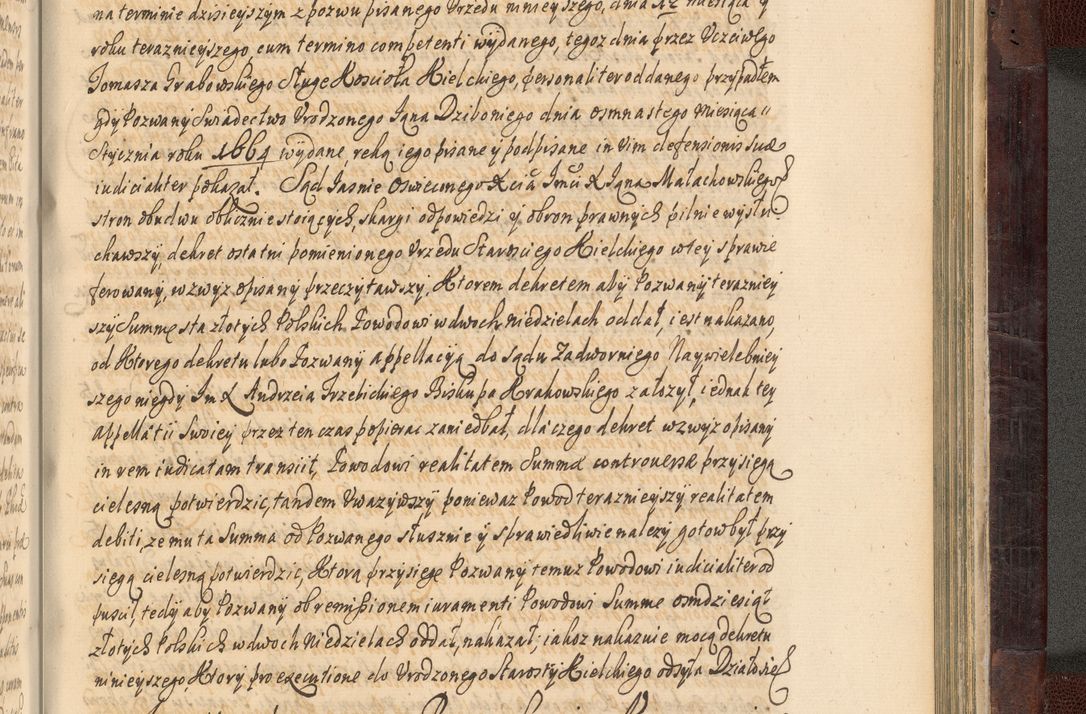 na terminie dzisieyszym z pozwu pisanego Urzędu ninieyszego, dnia 12 miesiąca y
roku terazniejszego cum termino competenti wydanego, tegoz dnia przez Uczciwego
Tomasza Grabowskiego Sługę Kosciola Kielckiego, personaliter oddanego przypadłem
gdy Pozwany Swiadectwo Urodzonego Jana Dziboniego dnia osmnastego Miesiąca
Stycznia roku 1664 wydane, ręką iego pisane y podpisane in vim defensionis suæ
iudicialiter pokazał. Sąd Jasnie Oswieconego X cia Jmći X Jana Małachowskiego
stron obudwu oblicznie stoiących, skargi odpowiedzi y obron prawnych pilnie wysłu
chawszy, dekret ostatni pomienionego Urzędu Starosciego Kielckiego w tey sprawie
ferowany, wzwyz opisany przeczytawszy, Ktorem dekretem aby Pozwany terazniey
szy Summę sta złotych Polskich Powodowi w dwoch niedzielach oddał, iest nakazano,
od Ktorego dekretu lubo Pozwany appellacyą do sądu Zadwornego Naywielebniey
szego niegdy Jm X Andrzeia Trzebickiego Biskupa Krakowskiego założył, iednak tey
appellatii swoiey przez ten czas popierac zaniedbał, dla czego dekret wzwyz opisany
in rem iudicatam transiit, Powodowi realitatem Summæ controversæ przysięgą
cielesną potwierdzic, tandem Uwazywszy poniewaz Powod terazniejszy realitatem
debiti, ze mu ta Summa od Pozwanego słusznie y sprawiedliwie nalezy gotow był przy
sięgą cielesną potwierdzic, Ktorą przysięgę Pozwany temuz Powodowi iudicialiter od
puscił, tedy aby Pozwany ob remissionem iuramenti Powodowi Summę osmdziesiąt
złotych Polskich w dwoch Niedzielach oddał, nakazał; iakoz nakazuie mocą dekretu
ninieyszego, Ktory pro executione do Urodzonego Starosty Kielckiego odsyła Działo się